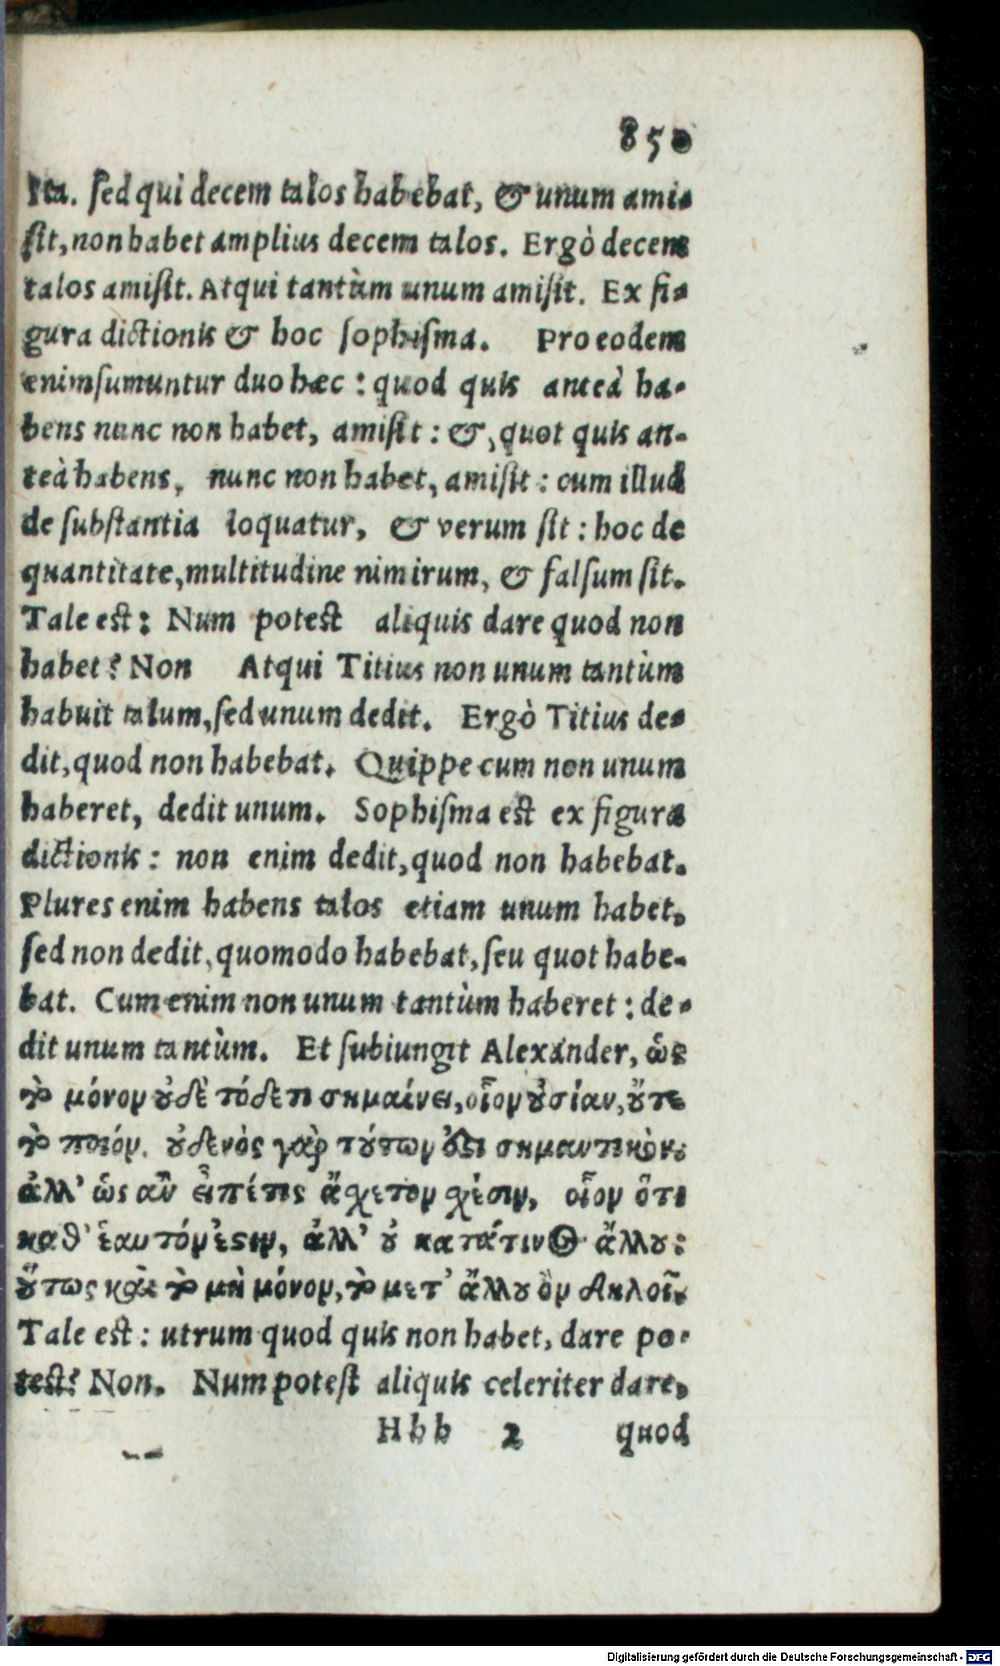 850
Ita. ſed qui decem talos habebat, & unum ami-
ſit, non habet amplius decem talos. Ergò decem
talos amiſit. Atqui tantùm unum amiſit. Ex fi-
gura dictionis & hoc ſophiſma. Pro eodem
enim ſumuntur duo hæc: quod quis anteà ha-
bens nunc non habet, amiſit: &, quot quis an-
teà habens, nunc non habet, amiſit: cum illud
de ſubſtantia loquatur, & verum ſit: hoc de
quantitate, multitudine nimirum, & falſum ſit.
Tale est: Num potest aliquis dare quod non
habet? Non Atqui Titius non unum tantùm
habuit talum, ſed unum dedit. Ergò Titius de-
dit, quod non habebat. Quippe cum non unum
haberet, dedit unum. Sophiſma est ex figura
dictionis: non enim dedit, quod non habebat.
Plures enim habens talos etiam unum habet,
ſed non dedit, quomodo habebat, ſeu quot habe-
bat. Cum enim non unum tantùm haberet: de-
dit unum tantùm. Et ſubiungit Alexander, ὡς
τὸ μόνον οὐδὲ τόδε τι σημαίνει, οἷον οὐσίαν, οὔτε
τὸ ποιόν. οὐδενὸς γὰρ τούτων ἐστὶ σημαντικὸν:
ἀλλ' ὡς ἂν εἴποι τις ἄσχετον σχέσιν, οἷον ὅτι
καθ' ἑαυτόν ἐστιν, ἀλλ' οὐ κατά τινος ἄλλου:
οὕτως καὶ τὸ μὴ μόνον, τὸ μετ' ἄλλου ὂν δηλοῖ.
Tale est: utrum quod quis non habet, dare po-
test? Non. Num poteſt aliquis celeriter dare,
Hhh 2 quod
Digitalisierung gefördert durch die Deutsche Forschungsgemeinschaft - DFG